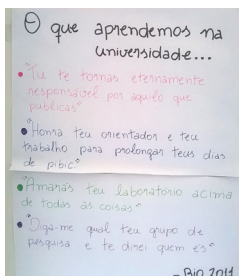 O que aprendemos na
universidade...
• "Tu te tornas eternamente
responsável por aquilo que
publicas"
• "Honra teu orientador e teu
trabalho para prolongar teus dias
de pibic."
• "Amarás teu laboratório acima
de todas as coisas"
• "Diga-me qual teu grupo de
pesquisa e te direi quem és"
- Bio 2011